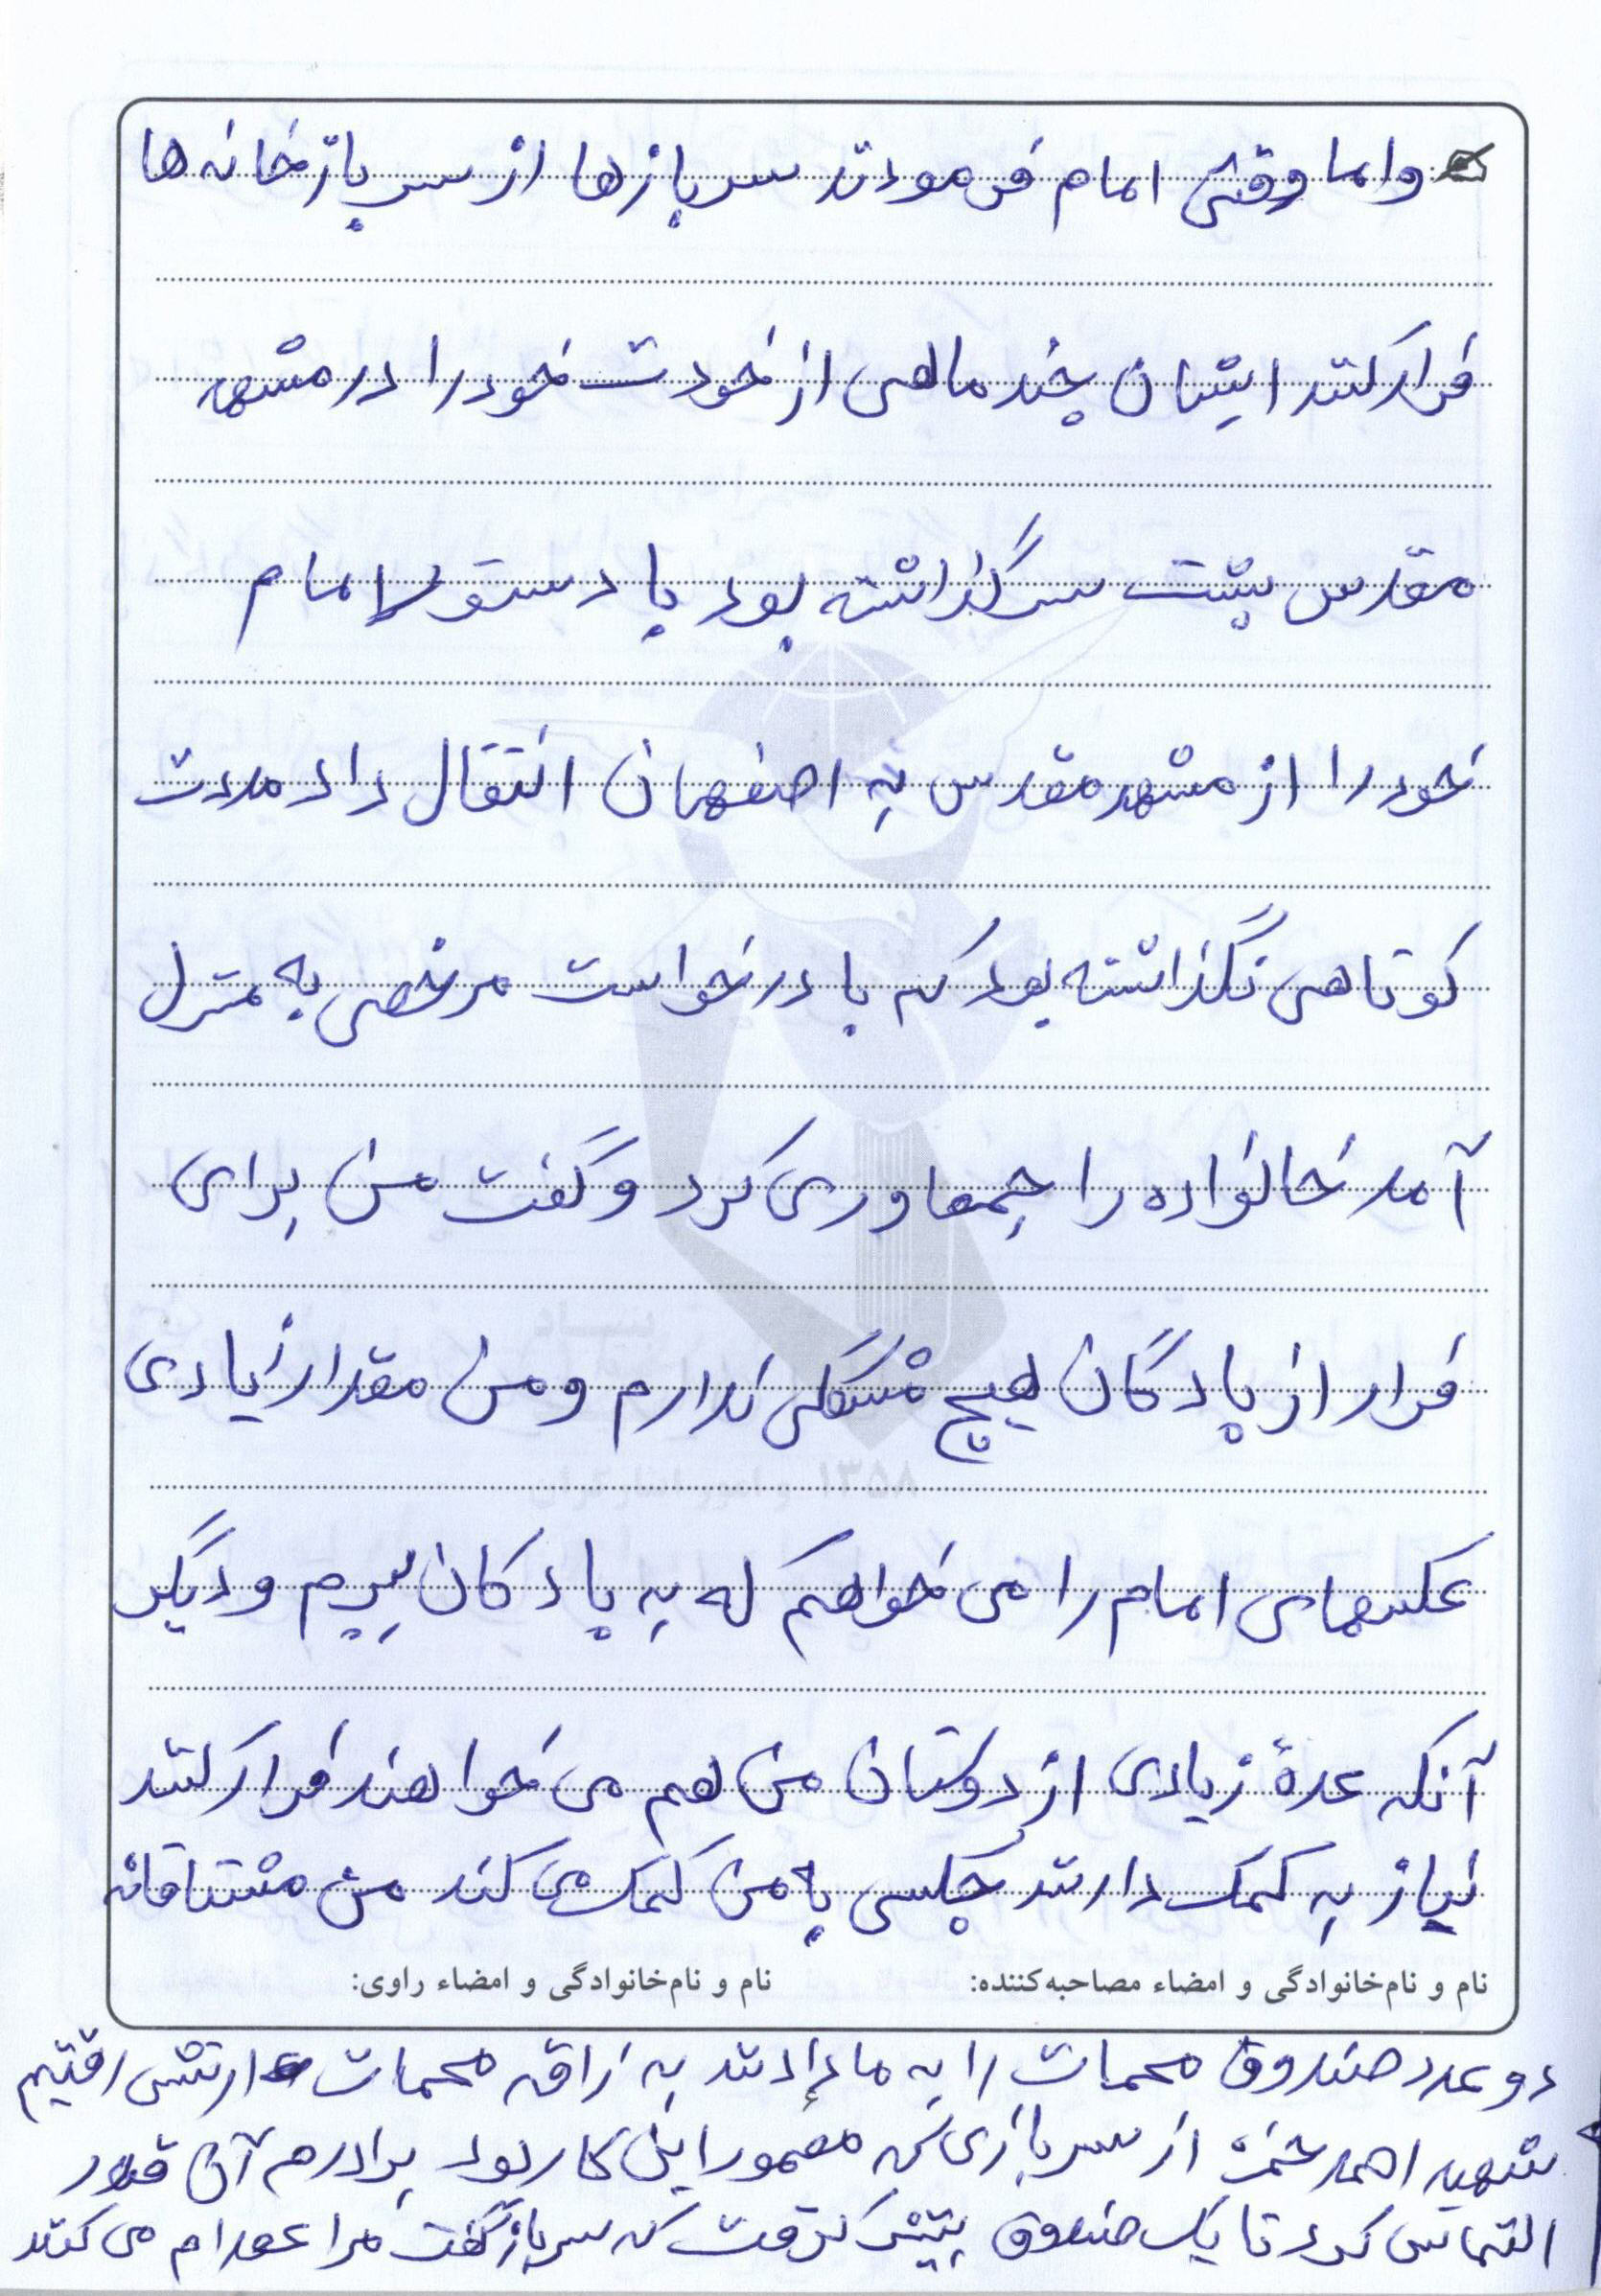 واما وقتی امام فرمودند سربازها از سربازخانه ها
فرار کنند ایشان چند ماهی از خودت خود را در مشهد
مقدس پشت سر گذاشته بود با دستور امام
خود را از مشهد مقدس به اصفهان انتقال داد مدت
کوتاهی نگذاشته بود که با درخواست مرخصی به منزل
آمد خانواده را جمعاوری کرد و گفت من برای
فرار از پادگان هیچ مشکلی ندارم و من مقدار زیادی
عکسهای امام را می خواهم که به پادگان ببرم و دیگر
آنکه عدهٔ زیادی از دوستان من هم می خواهند فرار کنند
نیاز به کمک دارند چکسی به من کمک می کند من مشتاقانه
نام و نام‌خانوادگی و امضاء مصاحبه‌کننده: نام و نام‌خانوادگی و امضاء راوی:
دو عدد صندوق محمات را به ما دادند به زاقه محمات ارتش رفتیم
شهید احمد از سربازی که معمور این کار بود برادرم آن قدر
التماس کرد تا یک صندوق بیشتر گرفت که سرباز گفت مرا عدام می کنند
۱۳۵۸